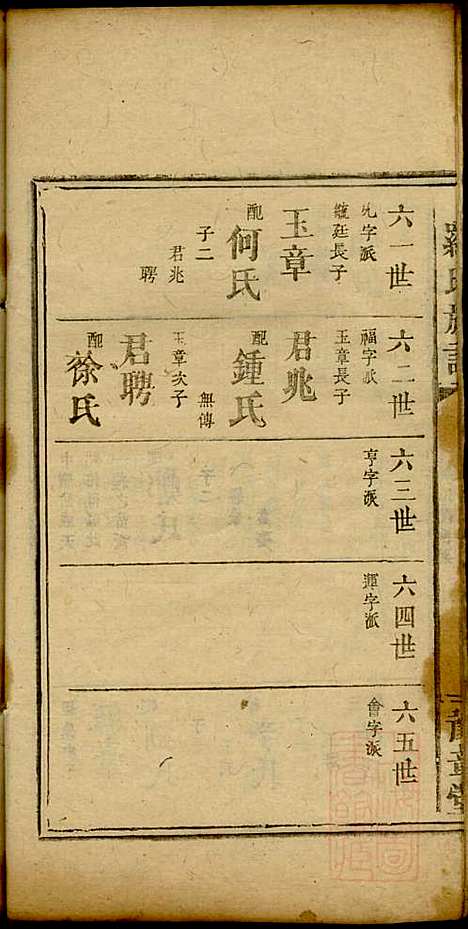 羅氏族譜
豫章堂
六一世
九字派
鑪廷長子
玉章
配何氏
子二
君兆
聘
六二世
福字派
玉章長子
君兆
配鍾氏
無傳
玉章次子
君聘
配徐氏
六三世
亨字派
六四世
運字派
六五世
會字派